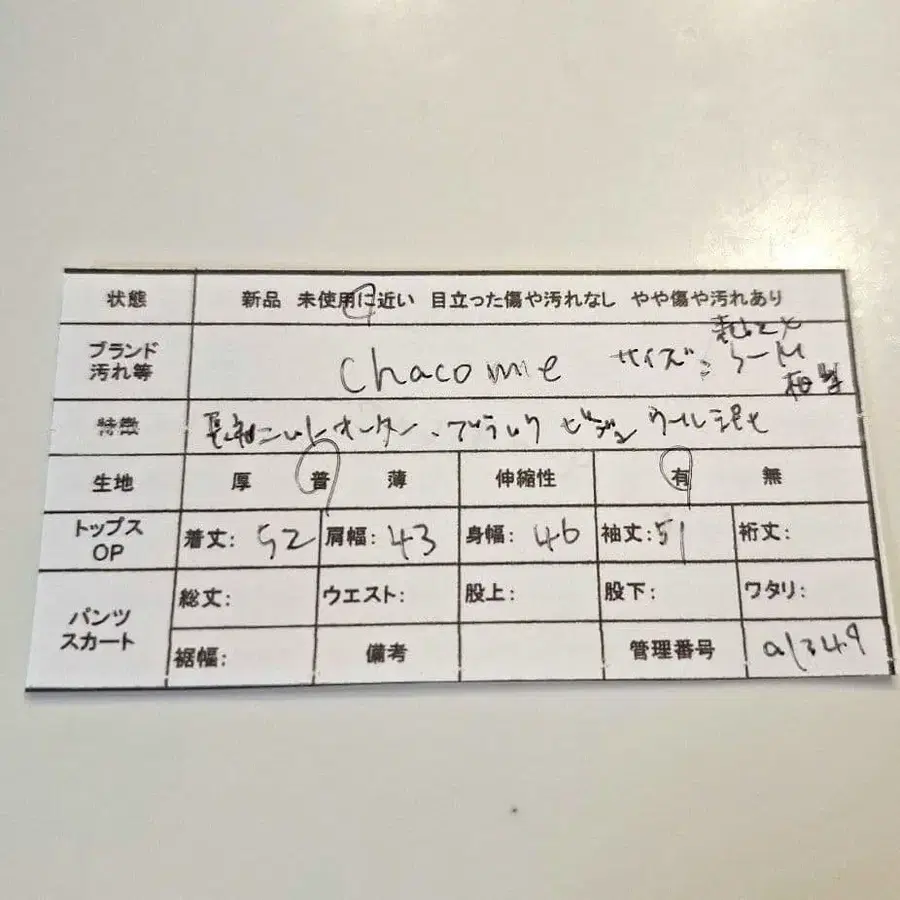 状態 新品 未使用に近い 目立った傷や汚れなし やや傷や汚れあり
ブランド 汚れ等 Chacomie サイズ: 表記なし S～M 相当
特徴 長袖ニットセーター、ブラック ビジュー ウール混
生地 厚 普 薄 伸縮性 有 無
トップス OP 着丈: 52 肩幅: 43 身幅: 46 袖丈: 51 裄丈:
パンツ スカート 総丈: ウエスト: 股上: 股下: ワタリ:
裾幅: 備考 管理番号 a1349